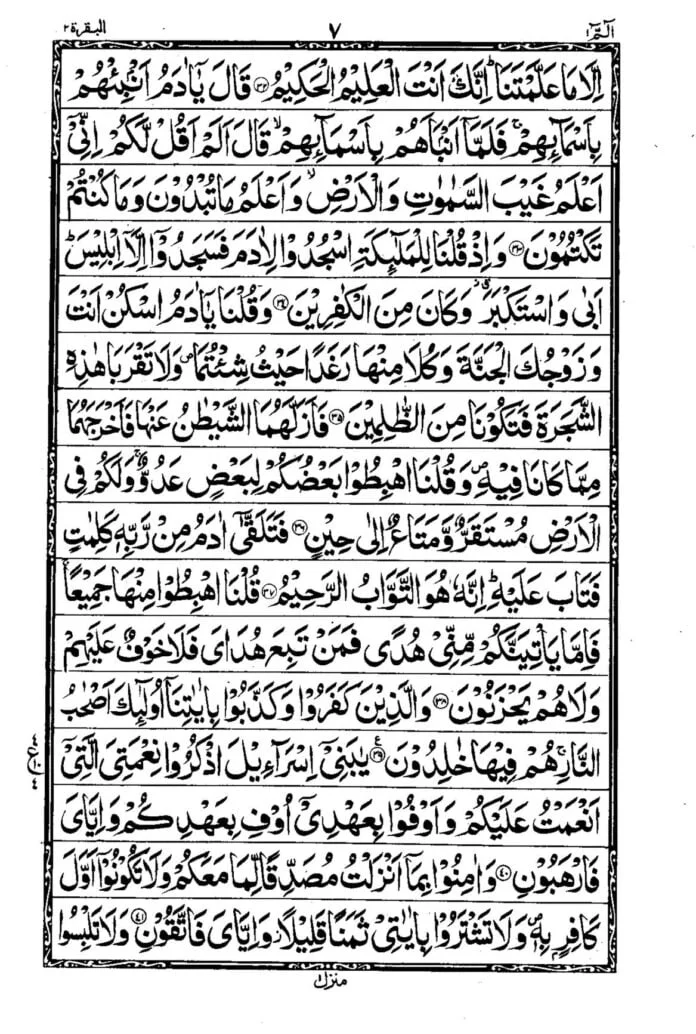 الٓمّٓ ١ ٧ البقرة ٢
اِلَّا مَا عَلَّمْتَنَا ؕ اِنَّكَ اَنْتَ الْعَلِيْمُ الْحَكِيْمُ ﴿۳۲﴾ قَالَ يٰۤاٰدَمُ اَنْۢبِئْهُمْ
بِاَسْمَآئِهِمْ ۚ فَلَمَّاۤ اَنْۢبَاَهُمْ بِاَسْمَآئِهِمْ ۙ قَالَ اَلَمْ اَقُلْ لَّكُمْ اِنِّیْۤ
اَعْلَمُ غَيْبَ السَّمٰوٰتِ وَالْاَرْضِ ۙ وَاَعْلَمُ مَا تُبْدُوْنَ وَمَا كُنْتُمْ
تَكْتُمُوْنَ ﴿۳۳﴾ وَاِذْ قُلْنَا لِلْمَلٰٓئِكَةِ اسْجُدُوْا لِاٰدَمَ فَسَجَدُوْۤا اِلَّاۤ اِبْلِيْسَ ؕ
اَبٰى وَاسْتَكْبَرَ ۗ وَكَانَ مِنَ الْكٰفِرِيْنَ ﴿۳۴﴾ وَقُلْنَا يٰۤاٰدَمُ اسْكُنْ اَنْتَ
وَزَوْجُكَ الْجَنَّةَ وَكُلَا مِنْهَا رَغَدًا حَيْثُ شِئْتُمَا ۪ وَلَا تَقْرَبَا هٰذِهِ
الشَّجَرَةَ فَتَكُوْنَا مِنَ الظّٰلِمِيْنَ ﴿۳۵﴾ فَاَزَلَّهُمَا الشَّيْطٰنُ عَنْهَا فَاَخْرَجَهُمَا
مِمَّا كَانَا فِيْهِ ۪ وَقُلْنَا اهْبِطُوْا بَعْضُكُمْ لِبَعْضٍ عَدُوٌّ ۚ وَلَكُمْ فِی
الْاَرْضِ مُسْتَقَرٌّ وَّمَتَاعٌ اِلٰى حِيْنٍ ﴿۳۶﴾ فَتَلَقّٰۤى اٰدَمُ مِنْ رَّبِّهٖ كَلِمٰتٍ
فَتَابَ عَلَيْهِ ؕ اِنَّهٗ هُوَ التَّوَّابُ الرَّحِيْمُ ﴿۳۷﴾ قُلْنَا اهْبِطُوْا مِنْهَا جَمِيْعًا ۚ
فَاِمَّا يَاْتِيَنَّكُمْ مِّنِّیْ هُدًى فَمَنْ تَبِعَ هُدَایَ فَلَا خَوْفٌ عَلَيْهِمْ
وَلَا هُمْ يَحْزَنُوْنَ ﴿۳۸﴾ وَالَّذِيْنَ كَفَرُوْا وَكَذَّبُوْا بِاٰيٰتِنَاۤ اُولٰٓئِكَ اَصْحٰبُ
النَّارِ ۚ هُمْ فِيْهَا خٰلِدُوْنَ ﴿۳۹﴾ ع يٰبَنِیْۤ اِسْرَآءِيْلَ اذْكُرُوْا نِعْمَتِیَ الَّتِیْۤ
٤ ع ١٠ ٤
اَنْعَمْتُ عَلَيْكُمْ وَاَوْفُوْا بِعَهْدِیْۤ اُوْفِ بِعَهْدِكُمْ وَاِيَّایَ
فَارْهَبُوْنِ ﴿۴۰﴾ وَاٰمِنُوْا بِمَاۤ اَنْزَلْتُ مُصَدِّقًا لِّمَا مَعَكُمْ وَلَا تَكُوْنُوْۤا اَوَّلَ
كَافِرٍۢ بِهٖ ۪ وَلَا تَشْتَرُوْا بِاٰيٰتِیْ ثَمَنًا قَلِيْلًا ؗ وَّاِيَّایَ فَاتَّقُوْنِ ﴿۴۱﴾ وَلَا تَلْبِسُوا
منزل ١